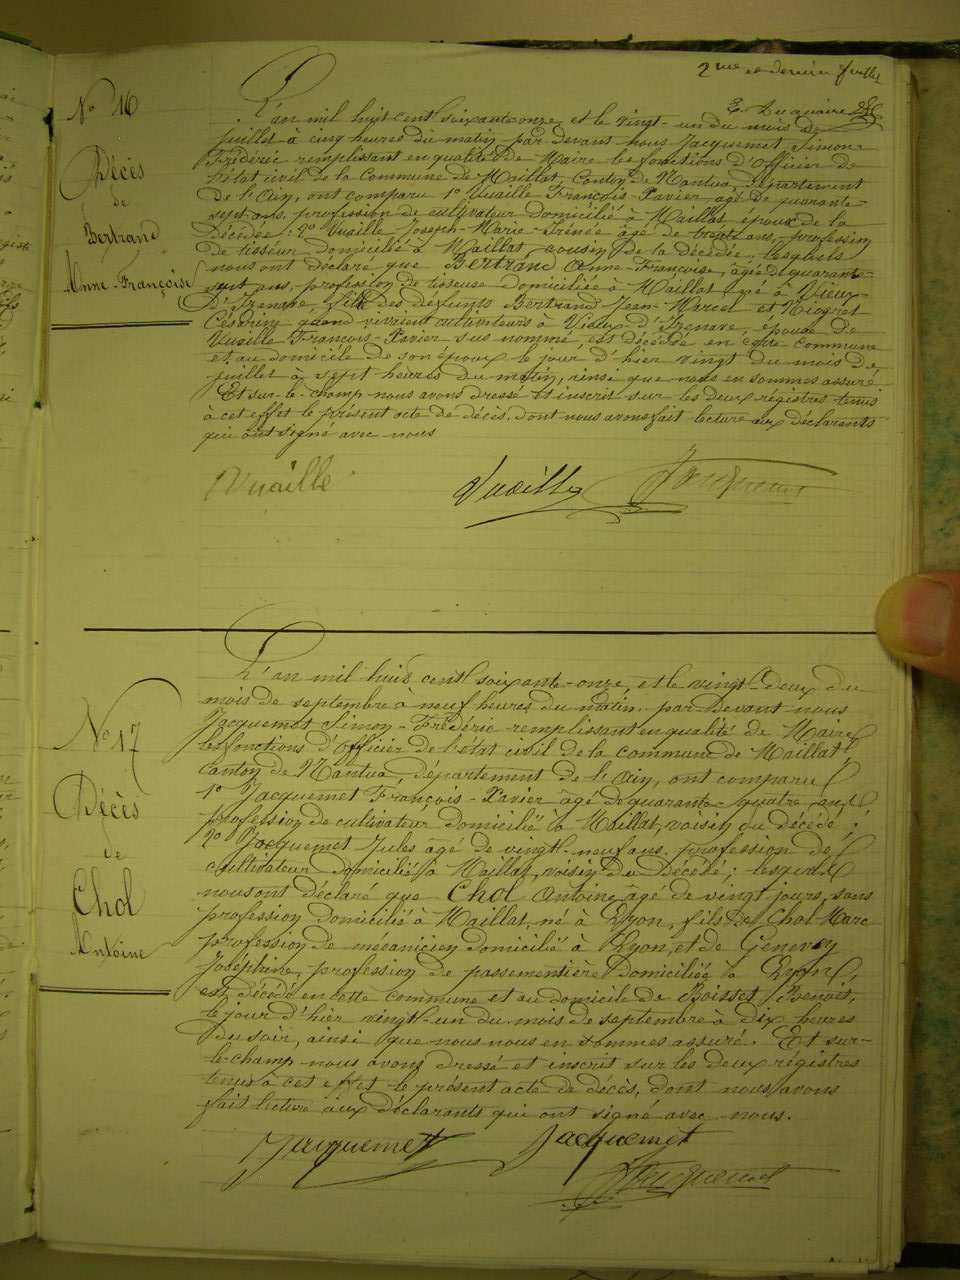 2me et dernier feuillet
N° 16
Décès
de
Bertrand
Anne-Françoise
L'an mil huit cent soixante onze, et le vingt-un du mois de
juillet à cinq heures du matin par devant nous Jacquemet, Simon-
Frédéric remplissant en qualité de Maire les fonctions d'Officier de
l'état civil de la Commune de Maillat, Canton de Nantua, département
de l'Ain, ont comparu 1° Vuaille François-Xavier âgé de quarante-
sept ans, profession de cultivateur domicilié à Maillat époux de la
décédée; 2° Vuaille Joseph-Marie-Irénée âgé de trente ans, profession
de tisseur, domicilié à Maillat, cousin de la décédée; lesquels
nous ont déclaré que Bertrand Anne-Françoise, âgée de quarante-
sept ans, profession de tisseuse domiciliée à Maillat né à Vieux-
D'Izenave, fille des défunts Bertrand Jean-Marcel et
quand vivaient cultivateurs à Vieux-d'Izenave, épouse de
Vuaille François-Xavier sus nommé, est décédée en cette commune
et au domicile de son époux le jour d'hier vingt du mois de
juillet à sept heures du matin, ainsi que nous en sommes assuré
Et sur-le-champ nous avons dressé et inscrit sur les deux régistres tenus
à cet effet le présent acte de décès, dont nous avons fait lecture aux déclarants
qui ont signé avec nous
Vuaille Vuaille Jacquemet
N° 17
Décès
de
Chol
Antoine
L'an mil huit cent soixante-onze, et le vingt-deux du
mois de septembre à neuf heures du matin, par devant nous
Jacquemet Simon-Frédéric remplissant en qualité de Maire
les fonctions d'Officier de l'état civil de la commune de Maillat,
canton de Nantua, département de l'Ain, ont comparu
1° Jacquemet François-Xavier âgé de quarante-quatre ans,
profession de cultivateur domicilié à Maillat, voisin du décédé;
2° Jacquemet Jules agé de vingt-neuf ans, profession de
cultivateur domicilié à Maillat, voisin du décédé; lesquels
nous ont déclaré que Chol Antoine âgé de vingt jours, sans
profession domicilié à Maillat, né à Lyon, fils de Chol Marc
profession de mécanicien domicilié à Lyon, et de Genevay
Joséphine, profession de passementière domiciliée à Lyon,
est décédé en cette commune et au domicile de Boisset Benoit,
le jour d'hier vingt-un du mois de septembre à dix heures
du soir, ainsi que nous nous en sommes assuré. Et sur-
le-champ nous avons dressé et inscrit sur les deux régistres
tenus à cet effet le présent acte de décès, dont nous avons
fait lecture aux déclarants qui ont signé avec nous.
Jacquemet Jacquemet
Jacquemet